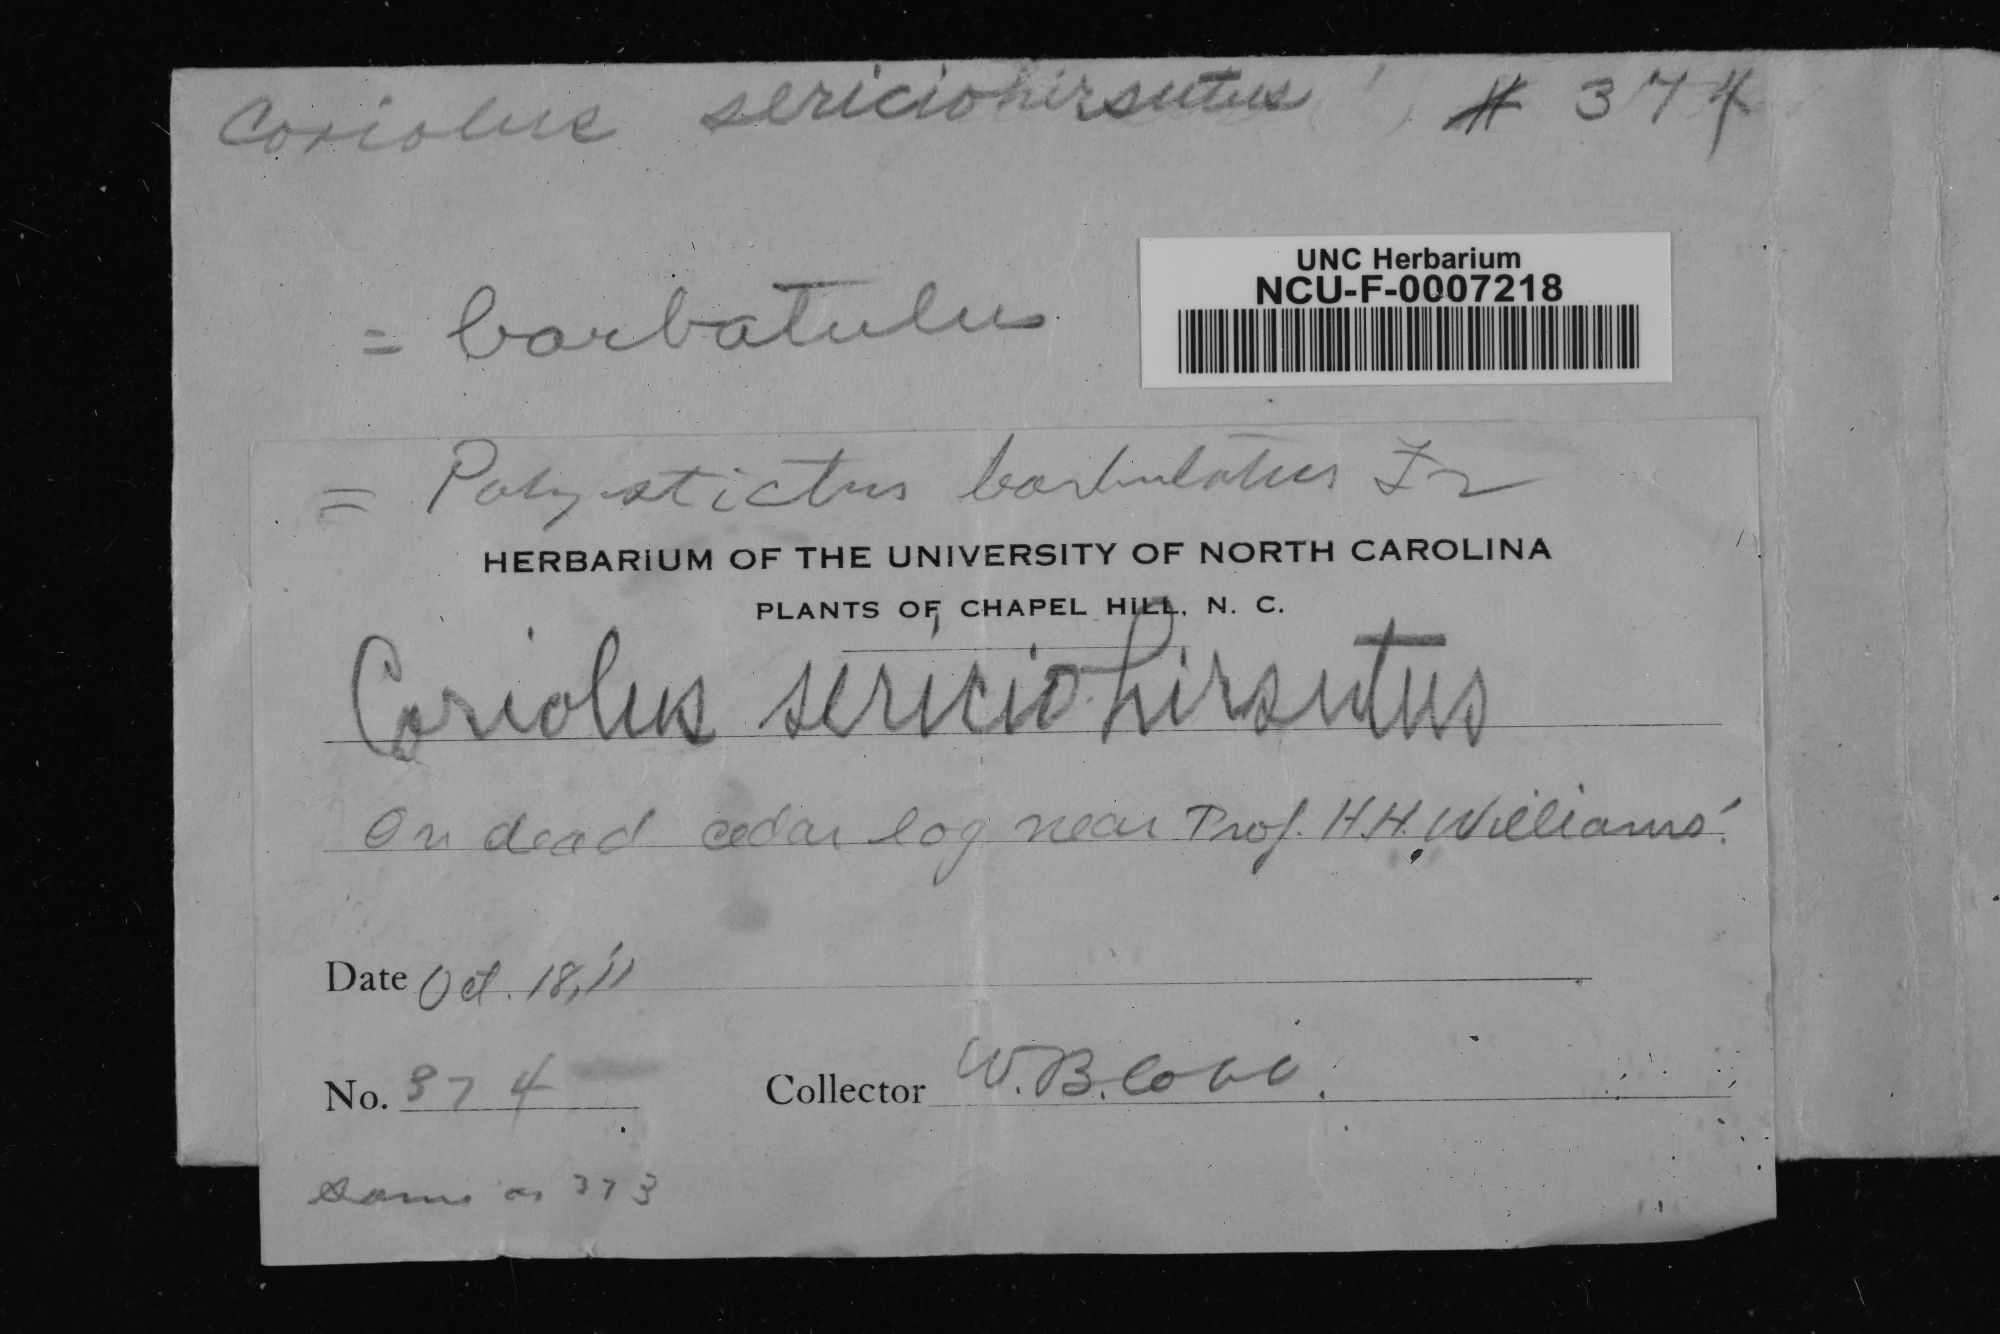 Coriolus sericiohirsutus # 374
UNC Herbarium
NCU-F-0007218
= barbatulus
= Polystictus barbulatus Fr
HERBARIUM OF THE UNIVERSITY OF NORTH CAROLINA
PLANTS OF CHAPEL HILL, N. C.
Coriolus sericiohirsutus
On dead cedar log near Prof. H.H. Williams'.
Date Oct. 18, '11
No. 374 Collector W.B. Cobb.
same as 373